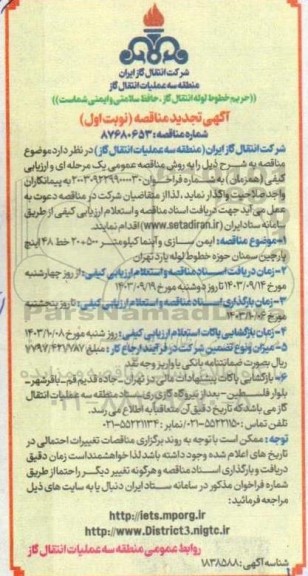 شرکت انتقال گاز ایران
منطقه سه عملیات انتقال گاز
((حریم خطوط لوله انتقال گاز، حافظ سلامتی و ایمنی شماست))
آگهی تجدید مناقصه (نوبت اول)
شماره مناقصه: ۸۷۶۸۰۶۵۳
شرکت انتقال گاز ایران (منطقه سه عملیات انتقال گاز) در نظر دارد موضوع
مناقصه به شرح ذیل را به روش مناقصه عمومی یک مرحله ای و ارزیابی
کیفی (همزمان) به شماره فراخوان ۲۰۰۳۰۹۲۲۹۹۰۰۰۰۳۰ به پیمانکاران
واجد صلاحیت واگذار نماید. لذا از متقاضیان شرکت در مناقصه دعوت به
عمل می آید جهت دریافت اسناد مناقصه و استعلام ارزیابی کیفی از طریق
سامانه ستاد ایران (www.setadiran.ir) اقدام نمایند.
۱- موضوع مناقصه: ایمن سازی و آپنما کیلومتر ۵۰۰+۲۰۰ خط ۴۸ اینچ
پارچین سمنان حوزه خطوط لوله یارد تهران
۲- زمان دریافت اسناد مناقصه و استعلام ارزیابی کیفی: از روز چهارشنبه
مورخ ۱۴۰۳/۰۹/۱۴ تا روز دوشنبه مورخ ۱۴۰۳/۰۹/۱۹
۳- زمان بارگذاری اسناد مناقصه و استعلام ارزیابی کیفی: تا روز پنجشنبه
مورخ ۱۴۰۳/۱۰/۰۶
۴- زمان بازگشایی پاکات استعلام ارزیابی کیفی: روز شنبه مورخ ۱۴۰۳/۱۰/۰۸
۵- میزان و نوع تضمین شرکت در فرآیند ارجاع کار: مبلغ ۷۷۹۷/۶۲۱/۷۸۷
ریال بصورت ضمانتنامه بانکی یا واریز وجه نقد
۶- بازگشایی پاکات پیشنهادات مالی در تهران - جاده قدیم قم - باقرشهر -
بلوار فلسطین - بعد از نیروگاه گازی ری ستاد منطقه سه عملیات انتقال
گاز می باشد که تاریخ دقیق آن متعاقبا به اطلاع می رسد.
تلفن تماس: ۵۵۲۲۱۱۵۰-۰۲۱ / نمابر: ۵۵۲۲۱۱۳۴-۰۲۱
توجه: ممکن است با توجه به روند برگزاری مناقصات تغییرات احتمالی در
تاریخ های اعلام شده وجود داشته باشد لذا خواهشمند است زمان دقیق
دریافت و بارگذاری اسناد مناقصه و هرگونه تغییر دیگر را حتما از طریق
شماره فراخوان مذکور در سامانه ستاد ایران دنبال یا به سایت های ذیل
مراجعه فرمائید:
http://iets.mporg.ir
http://www.District3.nigtc.ir
روابط عمومی منطقه سه عملیات انتقال گاز
شناسه آگهی: ۱۸۳۸۵۸۸